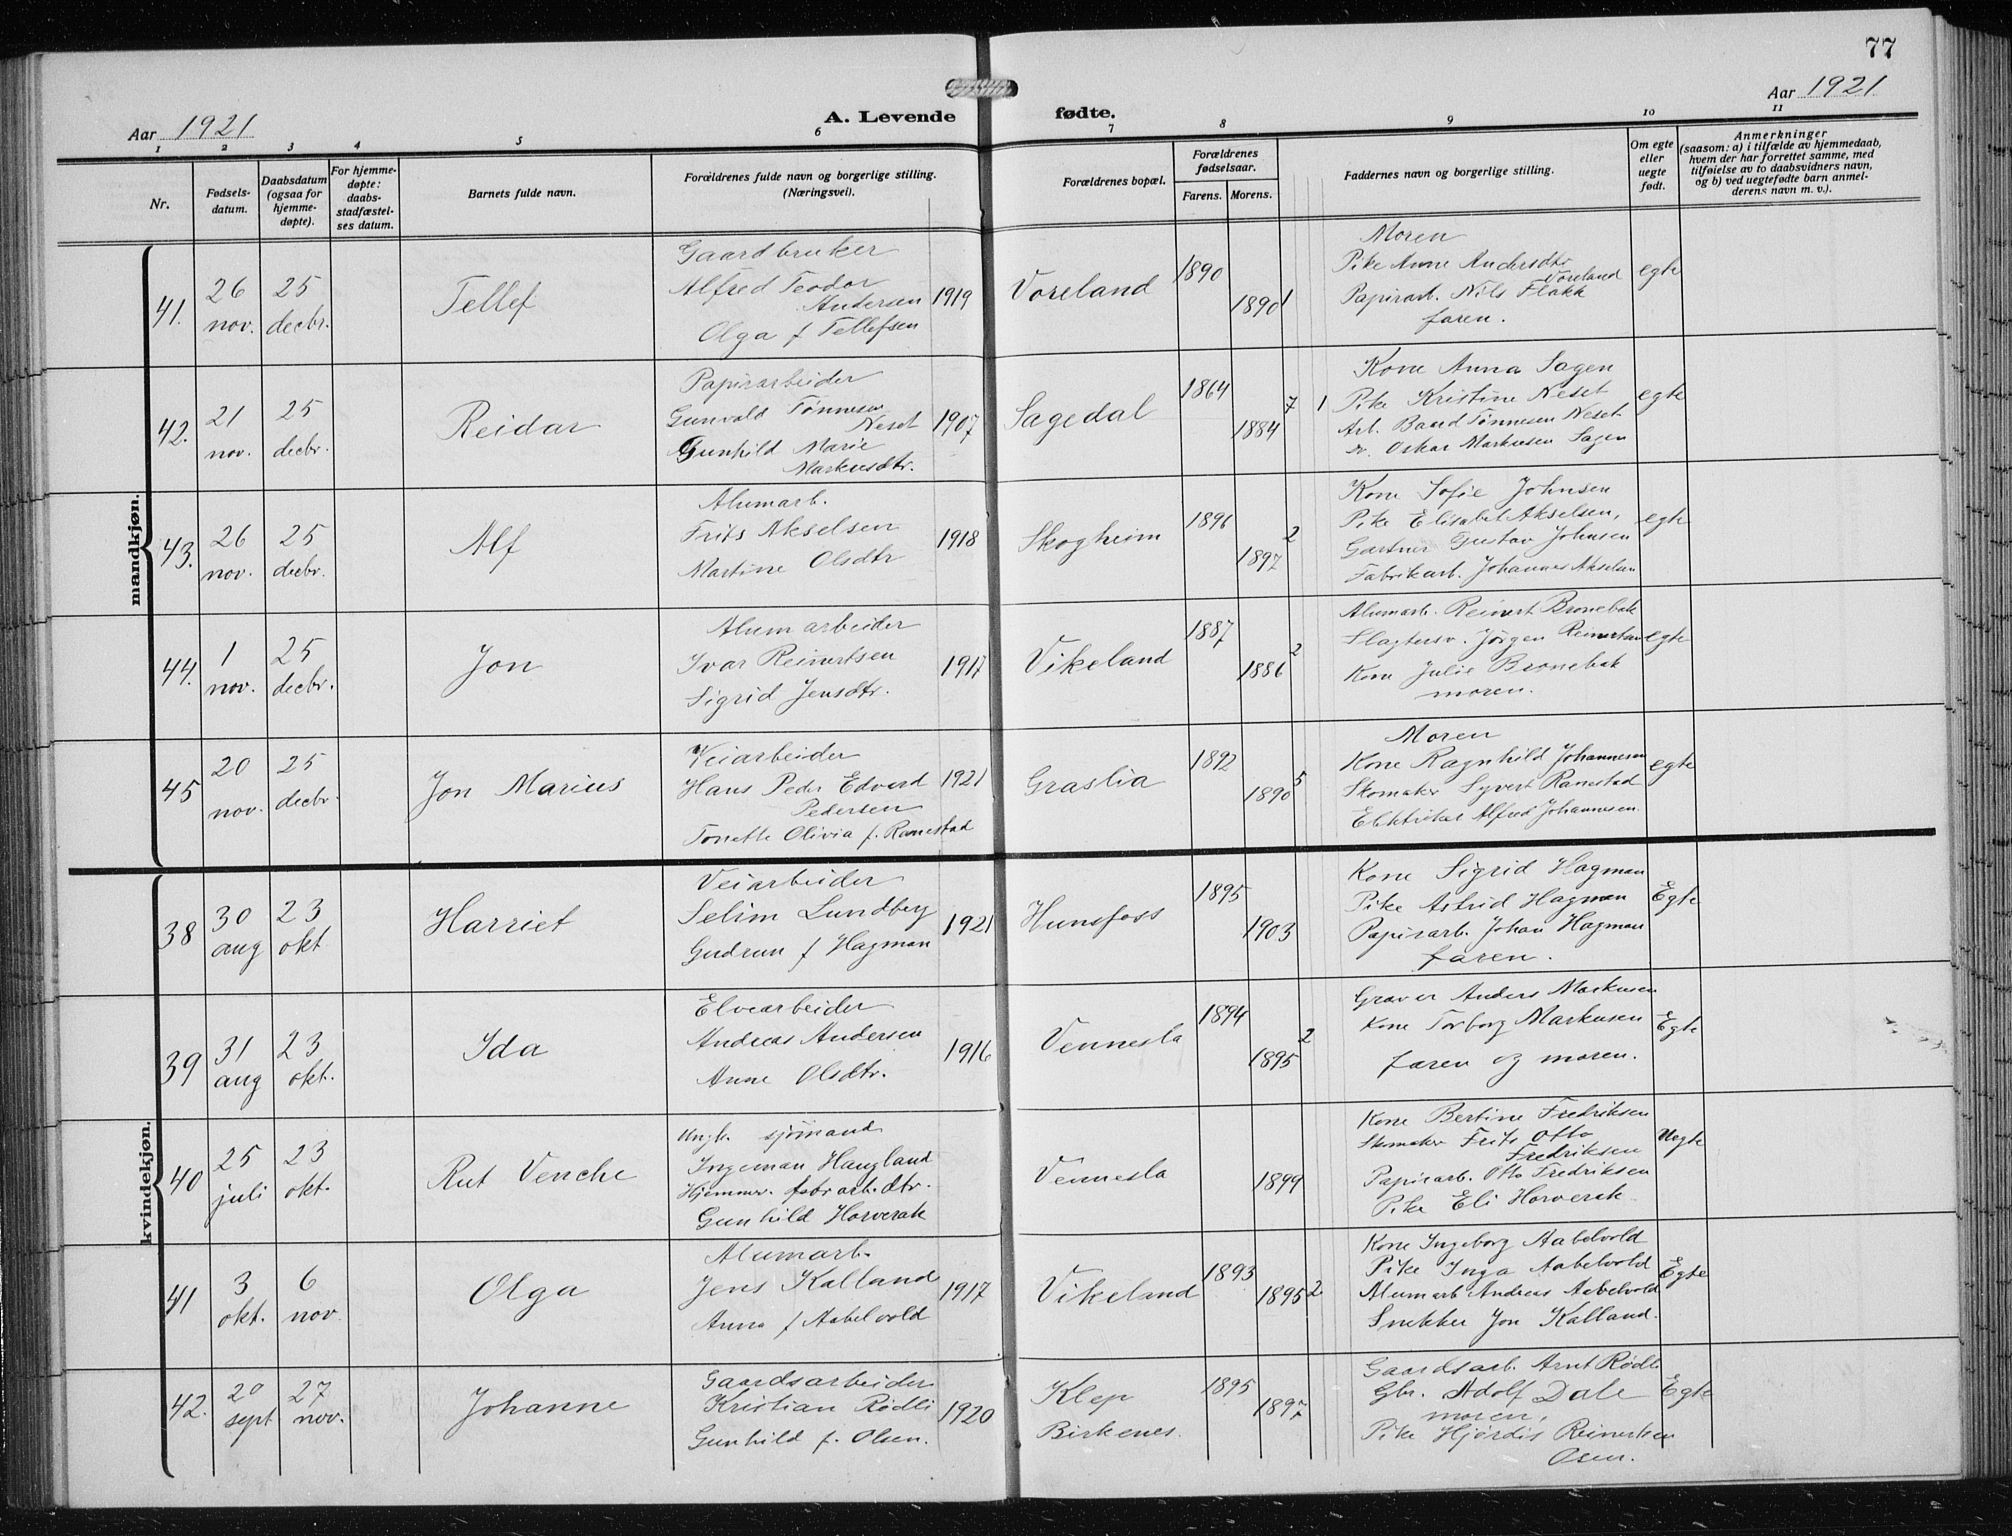 77
Aar 1921
A. Levende fødte.
Aar 1921
1 2 3 4 5 6 7 8 9 10 11
Nr.
Fødsels-
datum.
Daabsdatum
(ogsaa for
hjemme-
døpte).
For hjemme-
døpte:
daabs-
stadfæstel-
ses datum.
Barnets fulde navn.
Forældrenes fulde navn og borgerlige stilling.
(Næringsvei).
Forældrenes bopæl.
Forældrenes
fødselsaar.
Farens. Morens.
Faddernes navn og borgerlige stilling.
Om egte
eller
uegte
født.
Anmerkninger
(saasom: a) i tilfælde av hjemmedaab,
hvem der har forrettet samme, med
tilføielse av to daabsvidners navn,
og b) ved uegtefødte barn anmel-
derens navn m. v.).
mandkjøn.
41.
26
nov.
25
decbr.
Tellef
Gaardbruker
Alfred Teodor
Andersen
Olga f Tellefsen
1919
Voreland
1890
1890
1
Moren
Pike Anne Andersdtr
Voreland
Papirarb. Nils Flakk
faren.
egte
42.
21
nov.
25
decbr.
Reidar
Papirarbeider
Gunvald Tønnesen
Neset
Gunhild Marie
Markusdtr.
1907
Sagedal
1864
1884
7 1
Kone Anna Sagen
Pike Kristine Neset
Arb. Baard Tønnesen Neset
Oskar Markusen Sagen
egte
43.
26
nov.
25
decbr.
Alf
Alumarb.
Frits Akselsen
Martine Olsdtr
1918
Skogheim
1896
1897
2
Kone Sofie Johnsen
Pike Elisabet Akselsen,
Gartner Gustav Johnsen
Fabrikarb. Johannes Akselsen
egte
44.
1
nov.
25
decbr.
Jon
Alumarbeider
Ivar Reinertsen
Sigrid Jensdtr.
1917
Vikeland
1887
1886
2
Alumarb. Reinert Bronebak
Slagtersv. Jørgen Reinertsen
Kone Julie Bronebak
moren.
egte
45
20
nov.
25
decbr.
Jon Marius
Veiarbeider
Hans Peder Edvard
Pedersen
Tonette Olivia f. Ranestad
1921
Graslia
1892
1890
5
Moren
Kone Ragnhild Johannesen
Skomaker Syvert Ranestad
Elektriker Alfred Johannesen
egte
kvindekjøn.
38
30
aug
23
okt
Harriet
Veiarbeider
Selim Lundberg
Gudrun f Hagman
1921
Hunsfoss
1895
1903
Kone Sigrid Hagman
Pike Astrid Hagman
Papirarb. Johan Hagman
faren.
Egte
39
31
aug
23
okt.
Ida
Elvearbeider
Andreas Andersen
Anne Olsdtr.
1916
Vennesla
1894
1895
2
Graver Anders Markusen
Kone Torborg Markusen
faren og moren.
Egte
40
25
juli
23
okt.
Rut Venche
Ungk. sjømand
Ingeman Haugland
Hjemmev. fabrarb. dtr.
Gunhild Horverak
Vennesla
1899
Kone Bertine Fredriksen
Skomaker Frits Otto
Fredriksen
Papirarb. Otto Fredriksen
Pike Eli Horverak
Uegte
41
3
okt.
6
nov.
Olga
Alumarb.
Jens Kalland
Anna f Aabelvold
1917
Vikeland
1893
1895
2
Kone Ingeborg Aabelvold
Pike Inga Aabelvold
Alumarb Andreas Aabelvold
Snekker Jon Kalland.
Egte
42.
20
sept
27
nov.
Johanne
Gaardsarbeider
Kristian Rødli
Gunhild f. Olsen.
1920
Klep
Birkenes.
1895
1897
Gaardsarb. Arnt Rødli
Gbr. Adolf Dale
moren,
Pike Hjørdis Reinertsen
Osen.
Egte